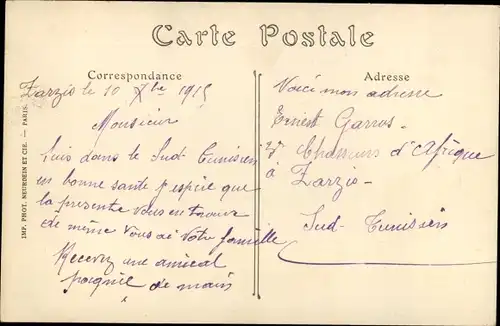 Carte Postale
Correspondance
Adresse
Zarzis le 10 Xbre 1915
Monsieur
Suis dans le Sud-Tunisien
en bonne santé j'espère que
la présente vous en trouve
de même vous ai Votre famille
Recevez une amical
poignie de main
Voici mon adresse
Ernest Garros-
Chasseurs d'Afrique
à Zarzis-
Sud-Tunisien
IMP. PHOT. NEURDEIN ET CIE. — PARIS.